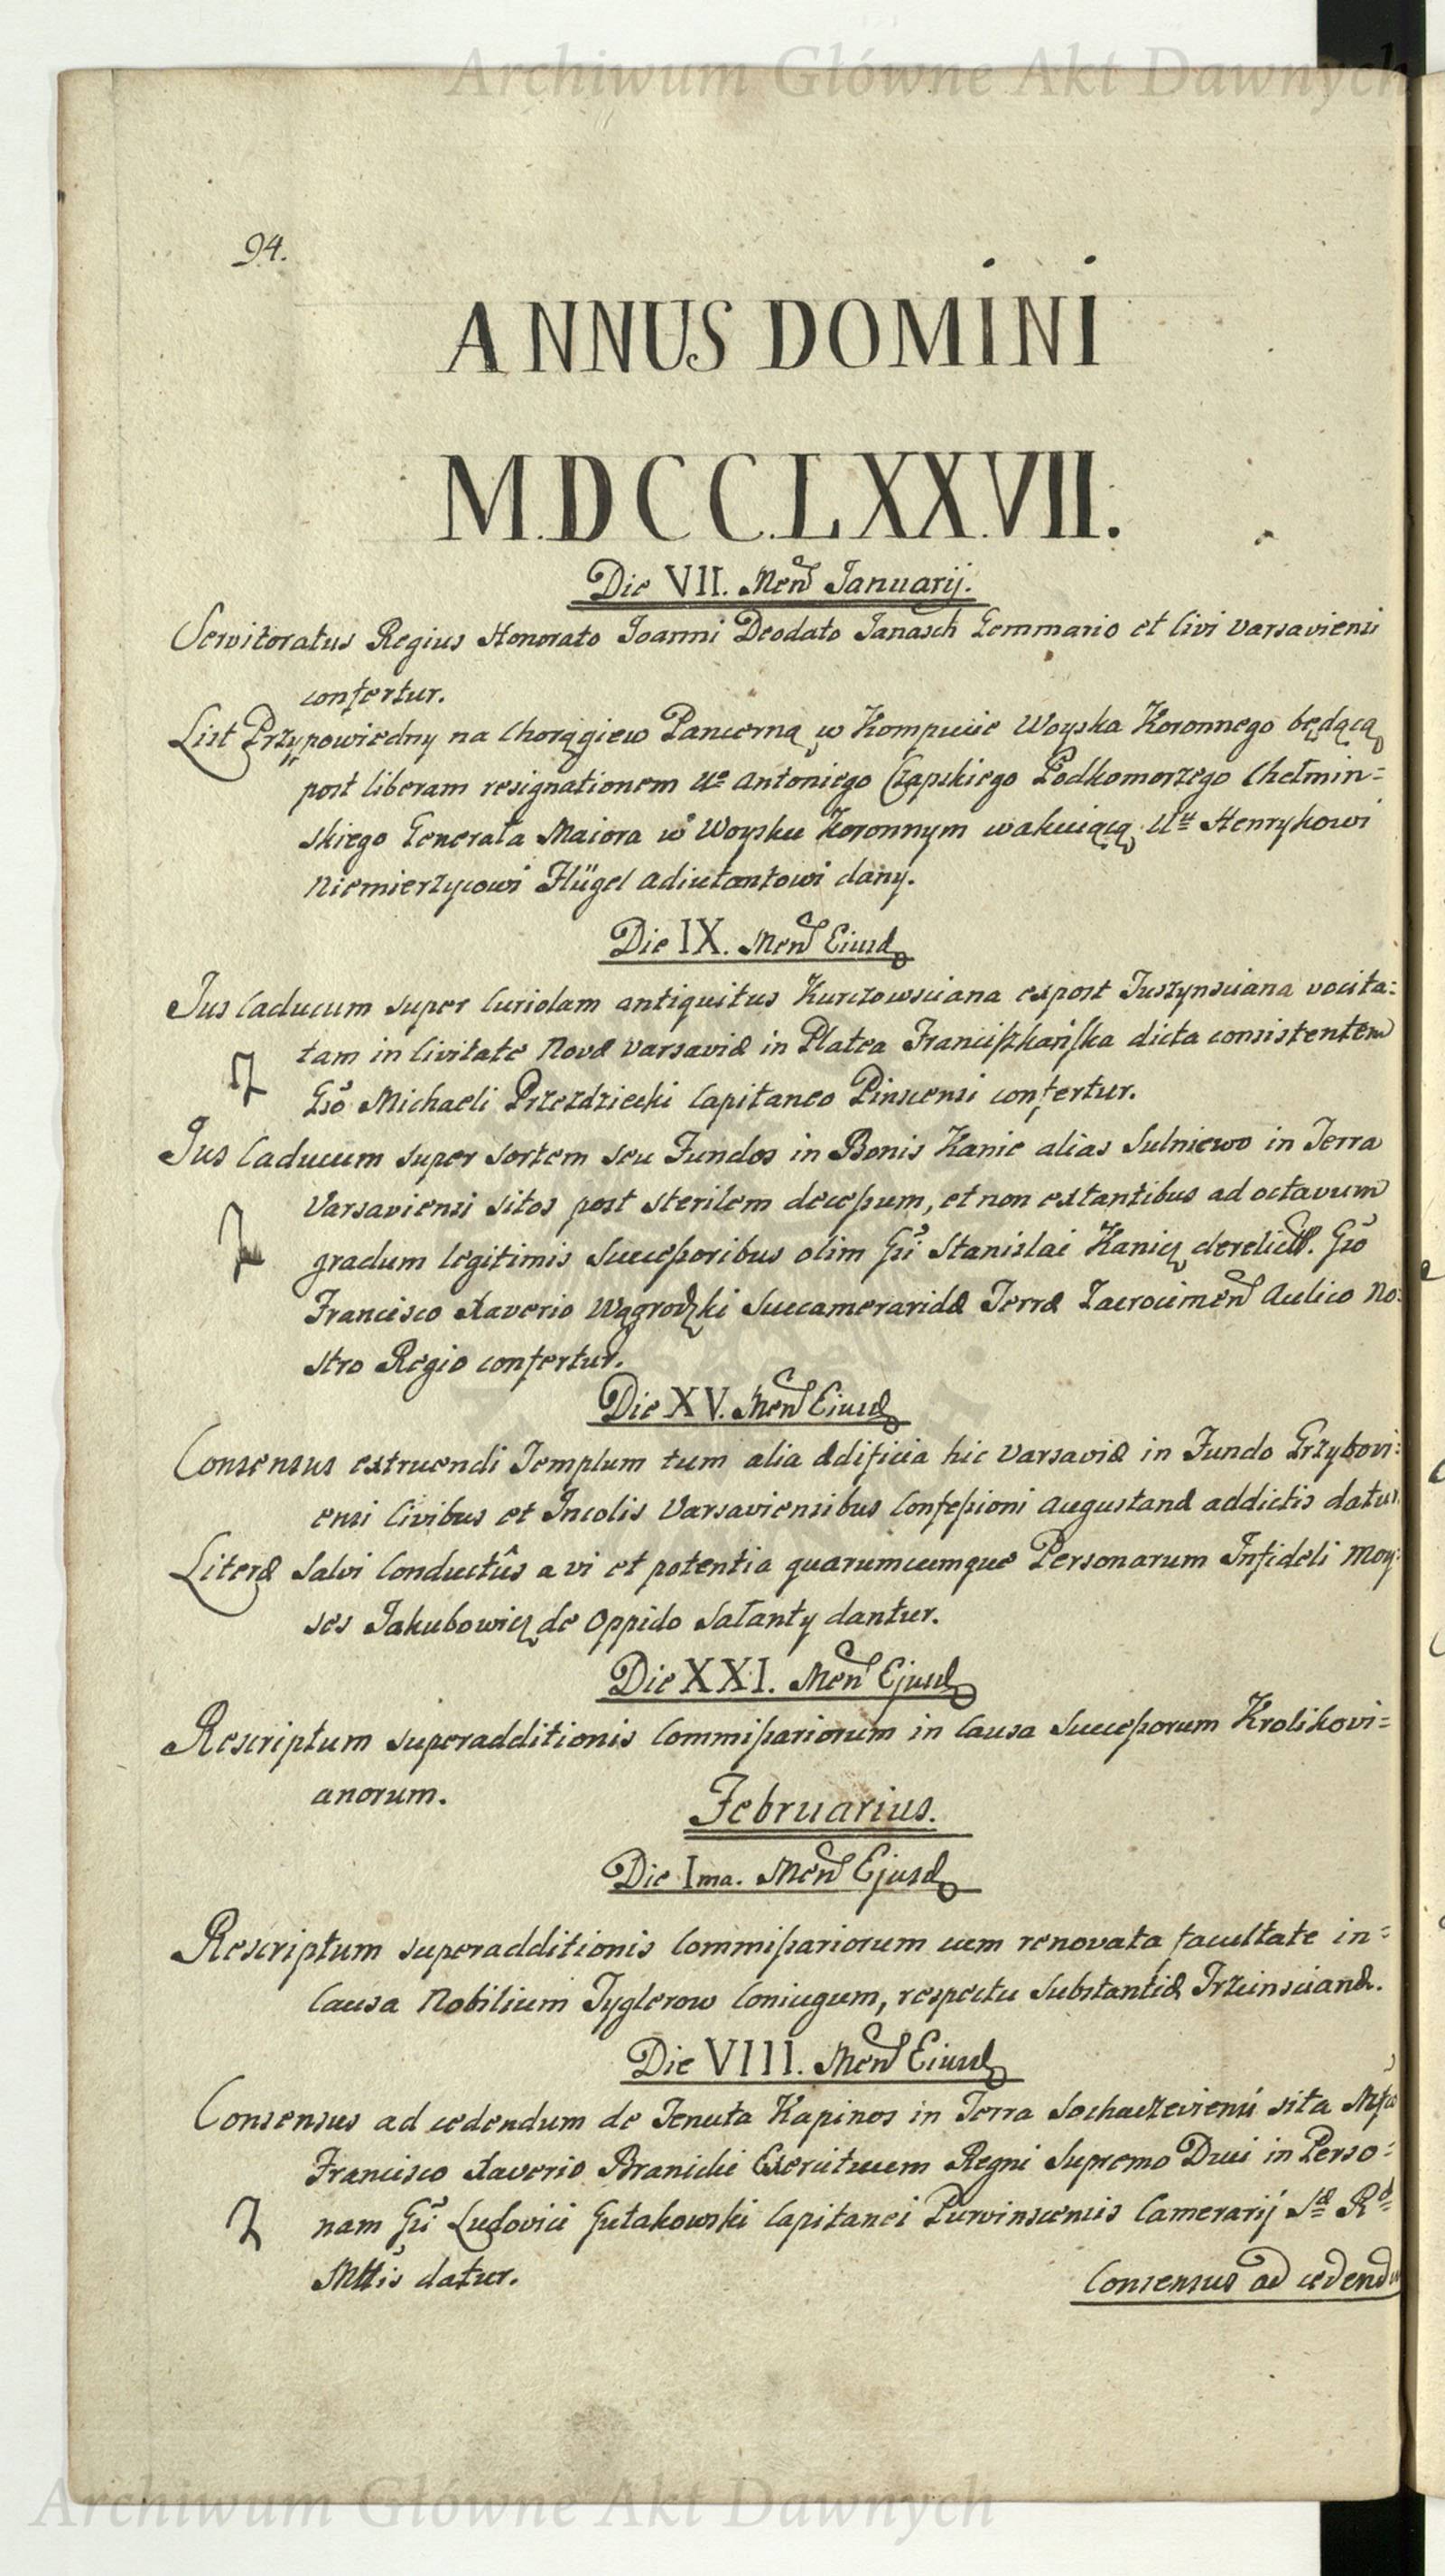 Archiwum Główne Akt Dawnych
94.
ANNUS DOMINI
M.DCC.LXX.VII.
Die VII. Men Januarij.
Servitoratus Regius Honorato Joanni Deodato Janasch Gemmario et Civi Varsaviensi
confertur.
List Przypowiedny na Chorągiew Pancerną w Kompucie Woyska Koronnego będącą
post liberam resignationem Uo Antoniego Czapskiego Podkomorzego Chełmin=
skiego Generała Maiora w Woysku Koronnym wakuiącą Uu Henrykowi
Niemierzycowi Flügel Adiutantowi dany.
Die IX. Men Eiusd
Jus Caducum super Curiolam antiquitus Kurczowsciana expost Juszynsciana vocita=
tam in Civitate Novæ Varsaviæ in Platea Franciszkańska dicta consistentem
Gso Michaeli Przezdziecki Capitaneo Pinscensi confertur.
Jus Caducum super Sortem seu Fundos in Bonis Kanie alias Sulniewo in Terra
Varsaviensi sitos post sterilem decessum, et non extantibus ad octavum
gradum legitimis Successoribus olim Gsi Stanislai Kanicz derelict. Gso
Francisco Xaverio Wągrodzki Succameraridæ Terræ Zacrocimen Aulico No=
stro Regio confertur.
Die XV. Men Eiusd
Consensus extruendi Templum tum alia Ædificia hic Varsaviæ in Fundo Grzybovi=
ensi Civibus et Incolis Varsaviensibus Confessioni Augustanæ addictis datur
Literæ Salvi Conductûs a vi et potentia quarumcumque Personarum Infideli Moy=
ses Jakubowicz de Oppido Sałanty dantur.
Die XXI. Men Ejusd
Rescriptum superadditionis Commissariorum in Causa Successorum Krolikovi=
anorum.
Februarius.
Die Ima. Men Ejusd
Rescriptum superadditionis Commissariorum cum renovata facultate in=
Causa Nobilium Tyglerow Coniugum, respectu Substantiæ Trzcinscianæ.
Die VIII. Men Eiusd
Consensus ad cedendum de Tenuta Kapinos in Terra Sochaczeviensi sita
Francisco Xaverio Branicki Exercituum Regni Supremo Duci in Perso=
nam Gsi Ludovici Gutakowski Capitanei Purvinscensis Camerarij Sæ Ræ
Mttis datur.
Consensus ad cedendu
Archiwum Główne Akt Dawnych